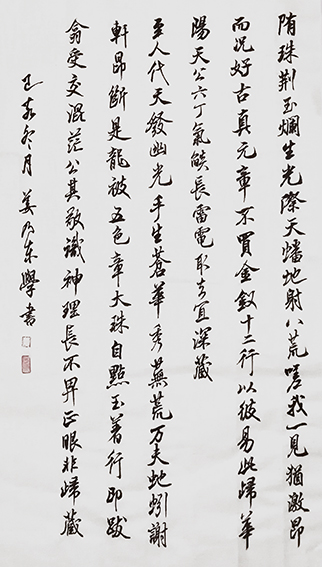 隋珠荆玉爛生光際天蟠地射八荒嗟我一見猶激昂
而况好古真元章不買金釵十二行以彼易此歸華
陽天公六丁氣燄長雷電取去宜深藏
至人代天發幽光手生蒼華秀蕪荒万夫蚍蚓謝
軒昂斷是龍被五色章大珠自點玉著行即跋
翕受交混茫公其敬識神理長不畀正眼非歸藏
己亥冬月 姜乃东學書